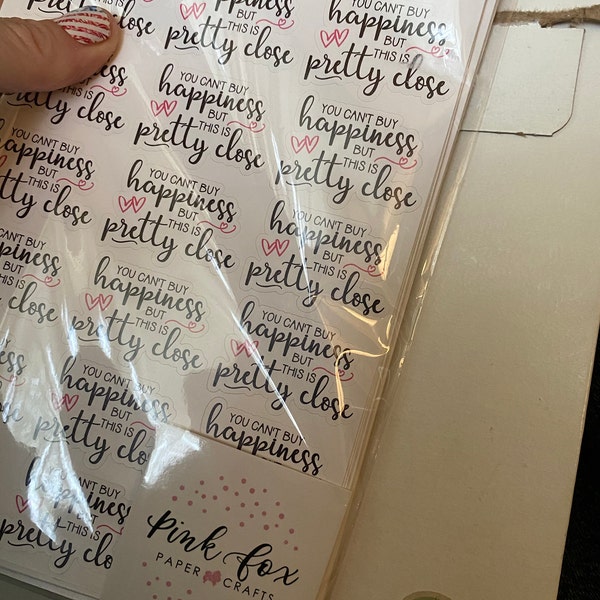 BUT
THIS IS
pretty close
happiness
BUT
THIS IS
pretty close
pretty close
YOU CAN'T BUY
happiness
BUT
THIS IS
pretty close
YOU CAN'T BUY
happiness
BUT
THIS IS
pretty close
YOU CAN'T BUY
happiness
BUT
THIS IS
close
YOU CAN'T BUY
happiness
BUT
THIS IS
pretty close
YOU CAN'T BUY
happiness
BUT
THIS IS
pretty close
BUY
BUT
close
YOU CAN'T BUY
happiness
BUT
THIS IS
pretty close
YOU CAN'T BUY
happiness
BUT
THIS IS
pretty close
YOU CAN'T BUY
happiness
BUT
THIS IS
pretty close
YOU CAN'T BUY
happiness
YOU CAN'T BUY
happiness
BUT
THIS IS
pretty clo
Pink Fox
PAPER CRAFTS